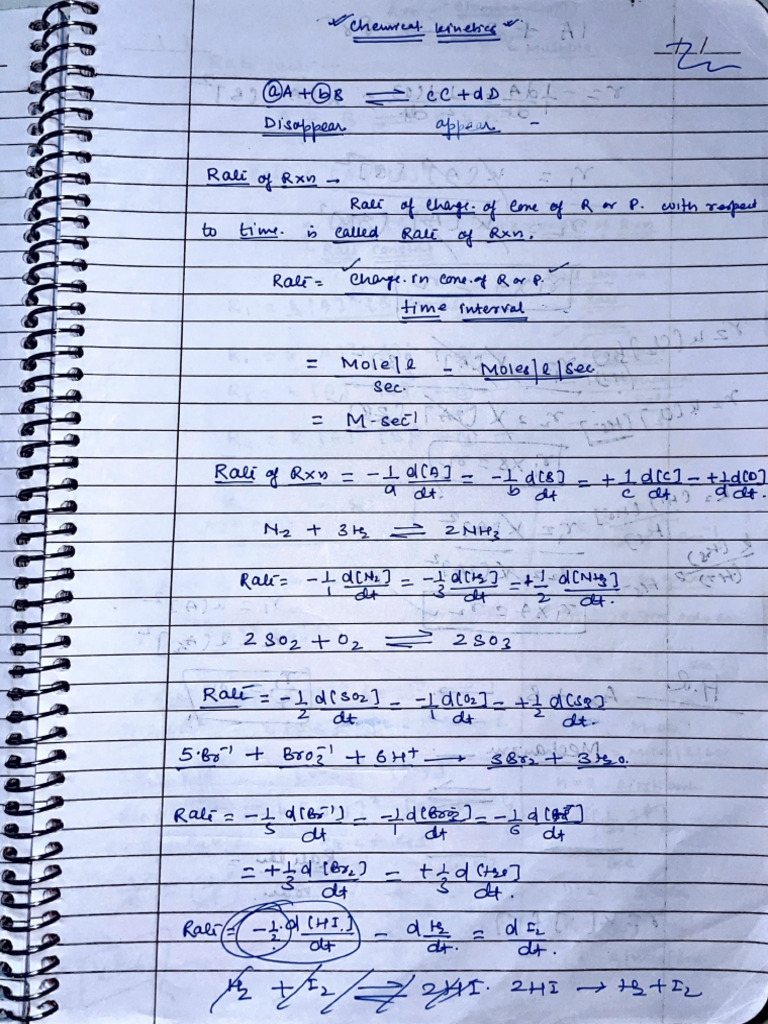 Chemical kinetics
ⓐA + ⓑB ⇌ cC + dD
Disappear appear -
Rate of Rxn -
Rate of change. of conc of R or P. with respect
to time. is called Rate of Rxn.
Rate = change. in conc. of R or P.
time interval
= Mole/l = Moles/l/sec
sec.
= M-sec⁻¹
Rate of Rxn = -1/a d[A]/dt = -1/b d[B]/dt = +1/c d[C]/dt. = +1/d d[D]/dt.
N₂ + 3H₂ ⇌ 2NH₃
Rate = -1/1 d[N₂]/dt = -1/3 d[H₂]/dt = +1/2 d[NH₃]/dt.
2SO₂ + O₂ ⇌ 2SO₃
Rate = -1/2 d[SO₂]/dt = -1/1 d[O₂]/dt = +1/2 d[SO₃]/dt.
5Br⁻¹ + BrO₃⁻¹ + 6H⁺ → 3Br₂ + 3H₂O.
Rate = -1/5 d[Br⁻¹]/dt = -1/1 d[BrO₃⁻]/dt = -1/6 d[H⁺]/dt
= +1/3 d[Br₂]/dt = +1/3 d[H₂O]/dt.
Rate = -1/2 d[HI]/dt = dH₂/dt. = dI₂/dt.
H₂ + I₂ ⇌ 2HI. 2HI → H₂ + I₂